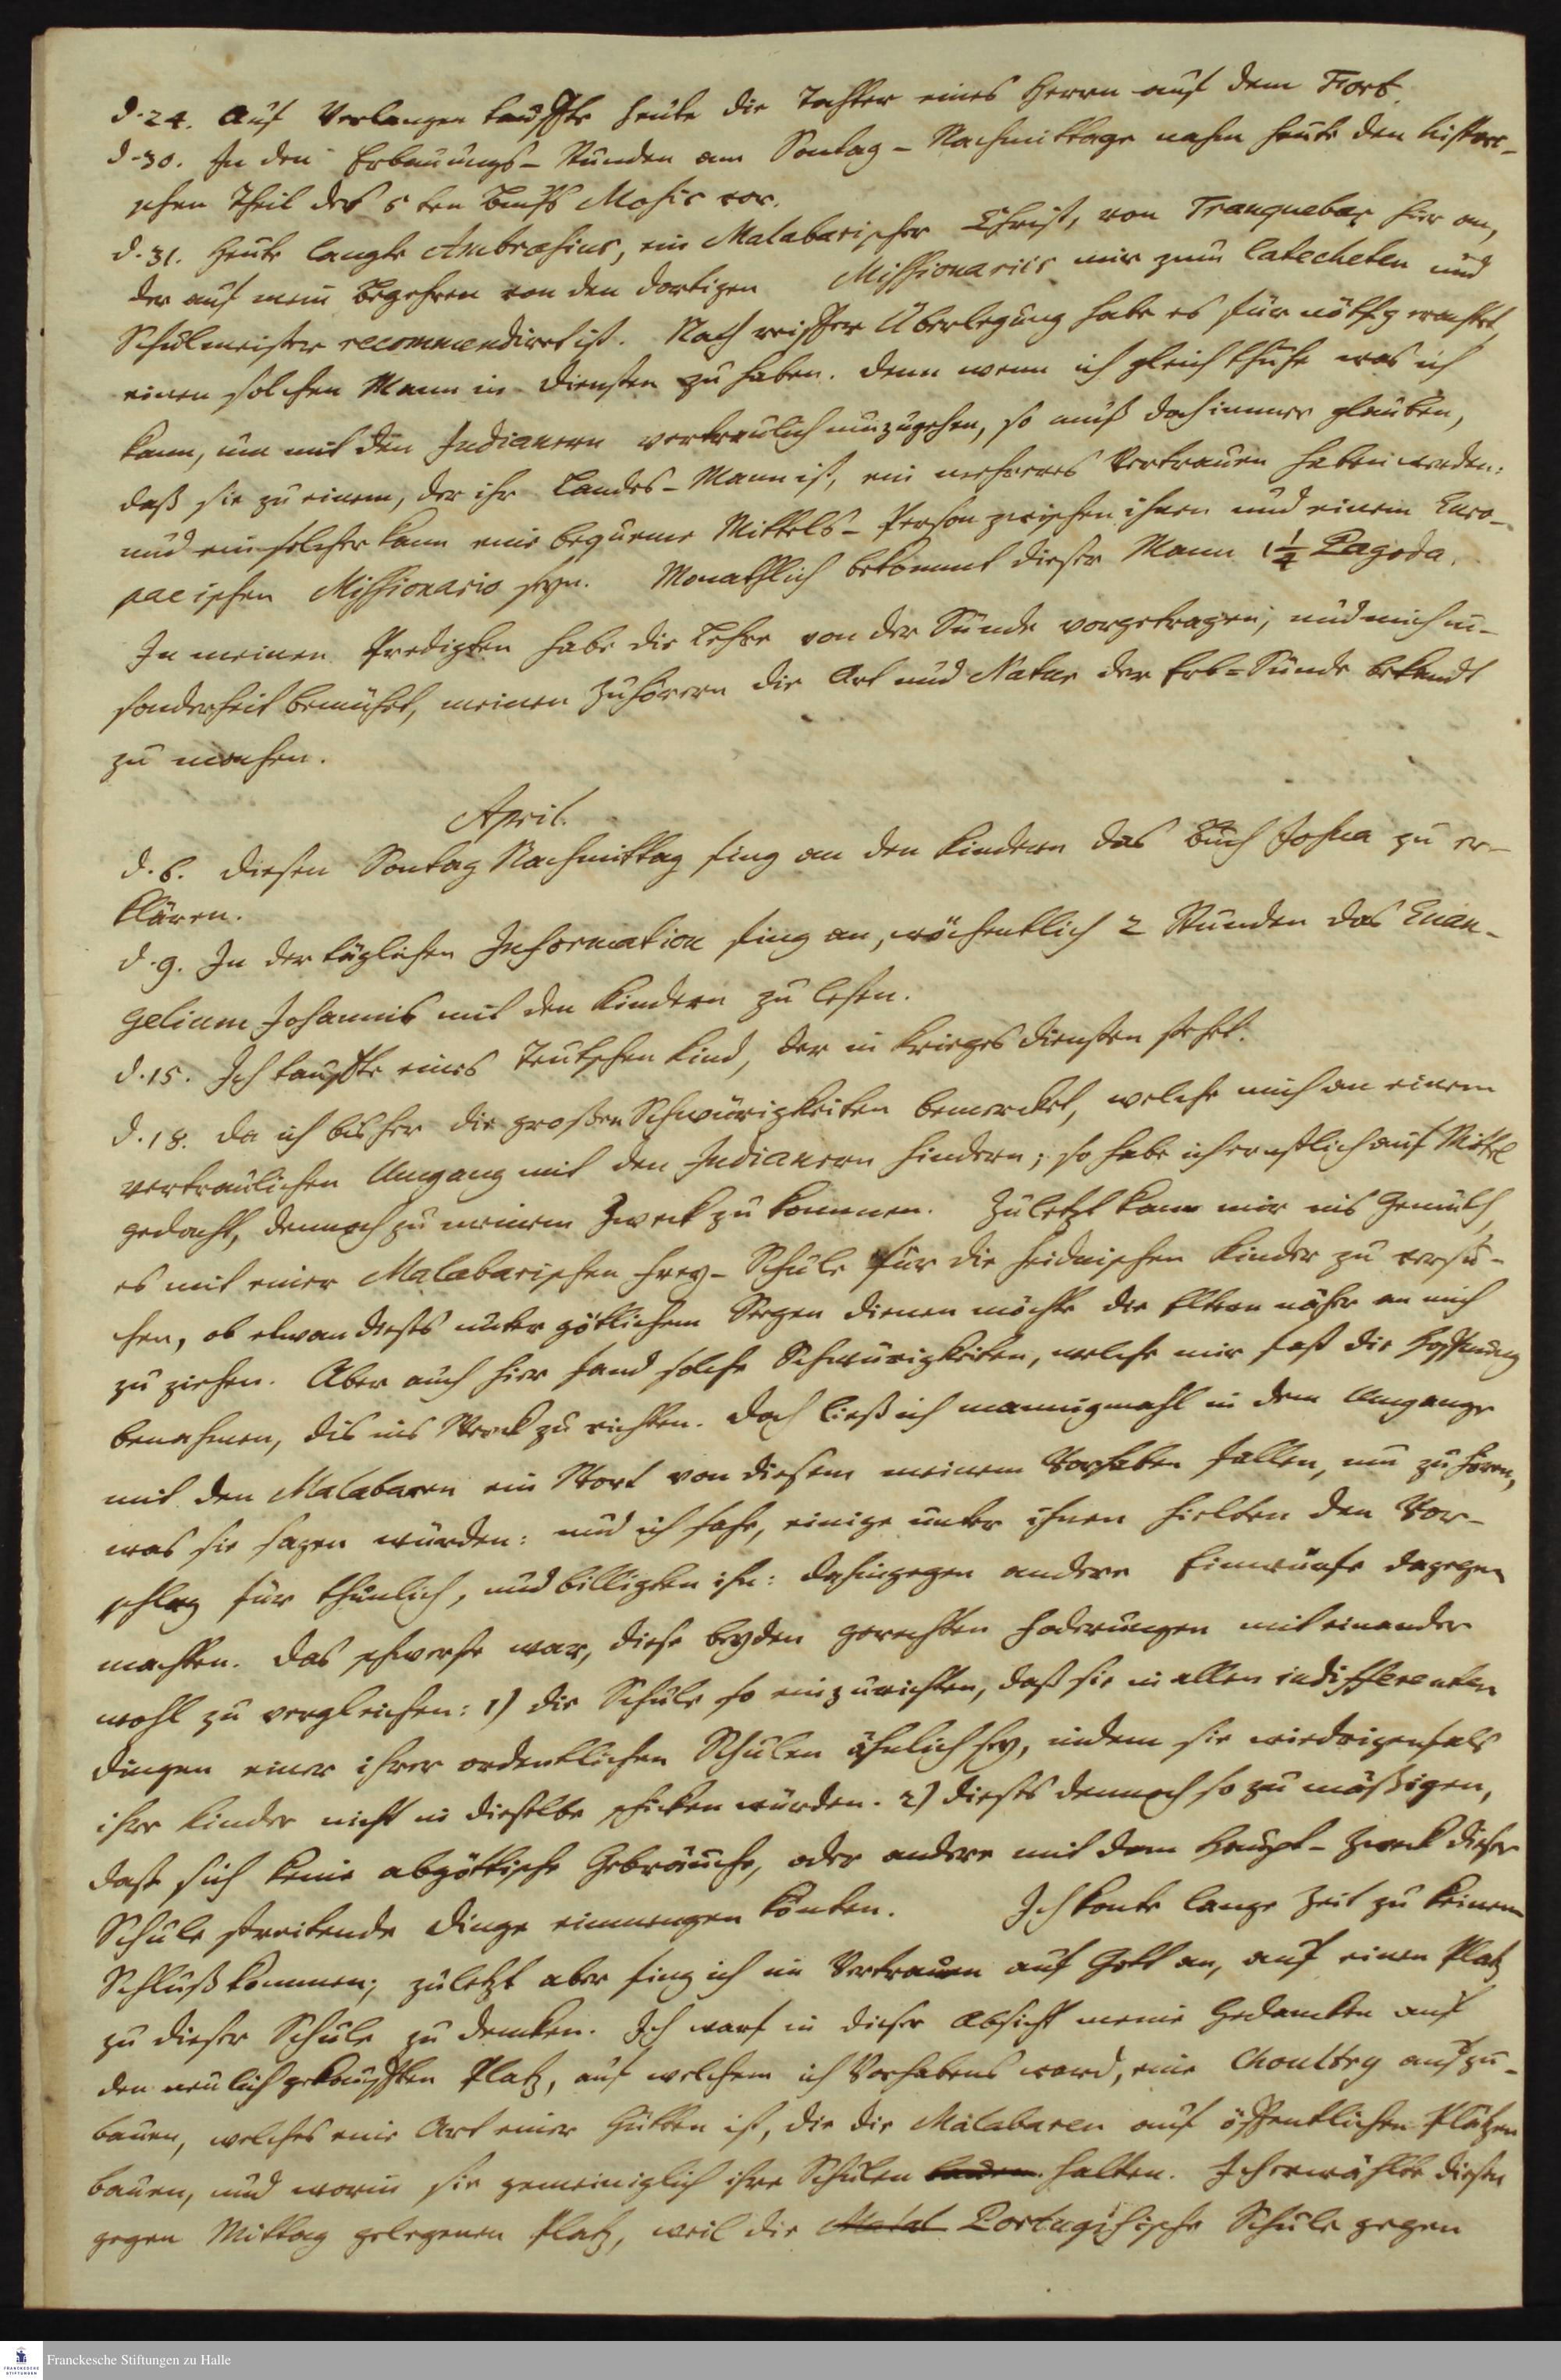 d. 24. Auf Verlangen tauffte heute die Tochter eines Herrn auf dem Fort.
d. 30. In den Erbauungs-Stunden am Sontag-Nachmittage nahm heute den histori-
schen Theil des 5ten Buchs Mosis vor.
d. 31. Heute langte Ambrosius, ein Malabarischer Christ, von Tranquebar hier an,
der auf mein Begehren von den dortigen Missionariis mir zum Catecheten und
Schulmeister recommendiret ist. Nach reiffer Überlegung habe es für nöthig erachtet,
einen solchen Mann in Diensten zu haben. Denn wenn ich gleich thuhe was ich
kann, um mit den Indianern vertraulich umzugehen, so muß doch immer glauben,
daß sie zu einem, der ihr Landes-Mann ist, ein mehreres Vertrauen haben werden:
und ein solcher kann eine bequeme Mittels-Person zwischen ihnen und einem Euro-
paeischen Missionario seyn. Monathlich bekommt dieser Mann 1 1/4 Pagoda.
In meinen Predigten habe die Lehre von der Sünde vorgetragen, und mich in-
sonderheit bemühet, meinen Zuhörern die Art und Natur der Erb-Sünde bekandt
zu machen.
April.
d. 6. Diesen Sontag Nachmittag fing an den Kindern das Buch Josua zu er-
klären.
d. 9. In der täglichen Information fing an, wöchentlich 2 Stunden das Evan-
gelium Johannis mit den Kindern zu lesen.
d. 15. Ich tauffte eines Teutschen Kind, der in Kriegesdiensten stehet.
d. 18. Da ich bisher die großen Schwürigkeiten bemercket, welche mich an einem
vertraulichen Umgang mit den Indianern hindern; so habe ich ernstlich auf Mittel
gedacht, dennoch zu meinem Zweck zu kommen. Zuletzt kam mir ins Gemüth,
es mit einer Malabarischen Frey-Schule für die heidnischen Kinder zu versu-
chen, ob etwan dieses unter göttlichem Segen dienen möchte die Eltern näher an mich
zu ziehen. Aber auch hier fand solche Schwürigkeiten, welche mir fast die Hoffnung
benahmen, dis ins Werck zu richten. Doch ließ ich mannigmahl in dem Umgange
mit den Malabaren ein Wort von diesem meinem Vorhaben fallen, um zu hören,
was sie sagen würden: und ich sahe, einige unter ihnen hielten den Vor-
schlag für thunlich, und billigten ihn: dahingegen andere Einwürfe dagegen
machten. Das schwerste war, diese beyden gerechten Foderungen mit einander
wohl zu vergleichen: 1) die Schule so einzurichten, daß sie in allen indifferenten
Dingen einer ihrer ordentlichen Schulen ähnlich sey, indem sie wiedrigenfals
ihre Kinder nicht in dieselbe schicken würden. 2) dieses dennoch so zu mäßigen,
daß sich keine abgöttische Gebräuche, oder andere mit dem Haupt-Zweck dieser
Schule streitende Dinge einmengen könten. Ich konte lange Zeit zu keinem
Schluß kommen; zuletzt aber fing ich im Vertrauen auf Gott an, auf einen Platz
zu dieser Schule zu dencken. Ich warf in dieser Absicht meine Gedancken auf
den neulich gekaufften Platz, auf welchem ich Vorhabens ward, eine Choultry aufzu-
bauen, welches eine Art einer Hütten ist, die die Malabaren auf öffentlichen Plätzen
bauen, und worin sie gemeiniglich ihre Schulen halten. Ich erwählte diesen
gegen Mittag gelegenen Platz, weil die Malab Portugisische Schule gegen
Franckesche Stiftungen zu Halle